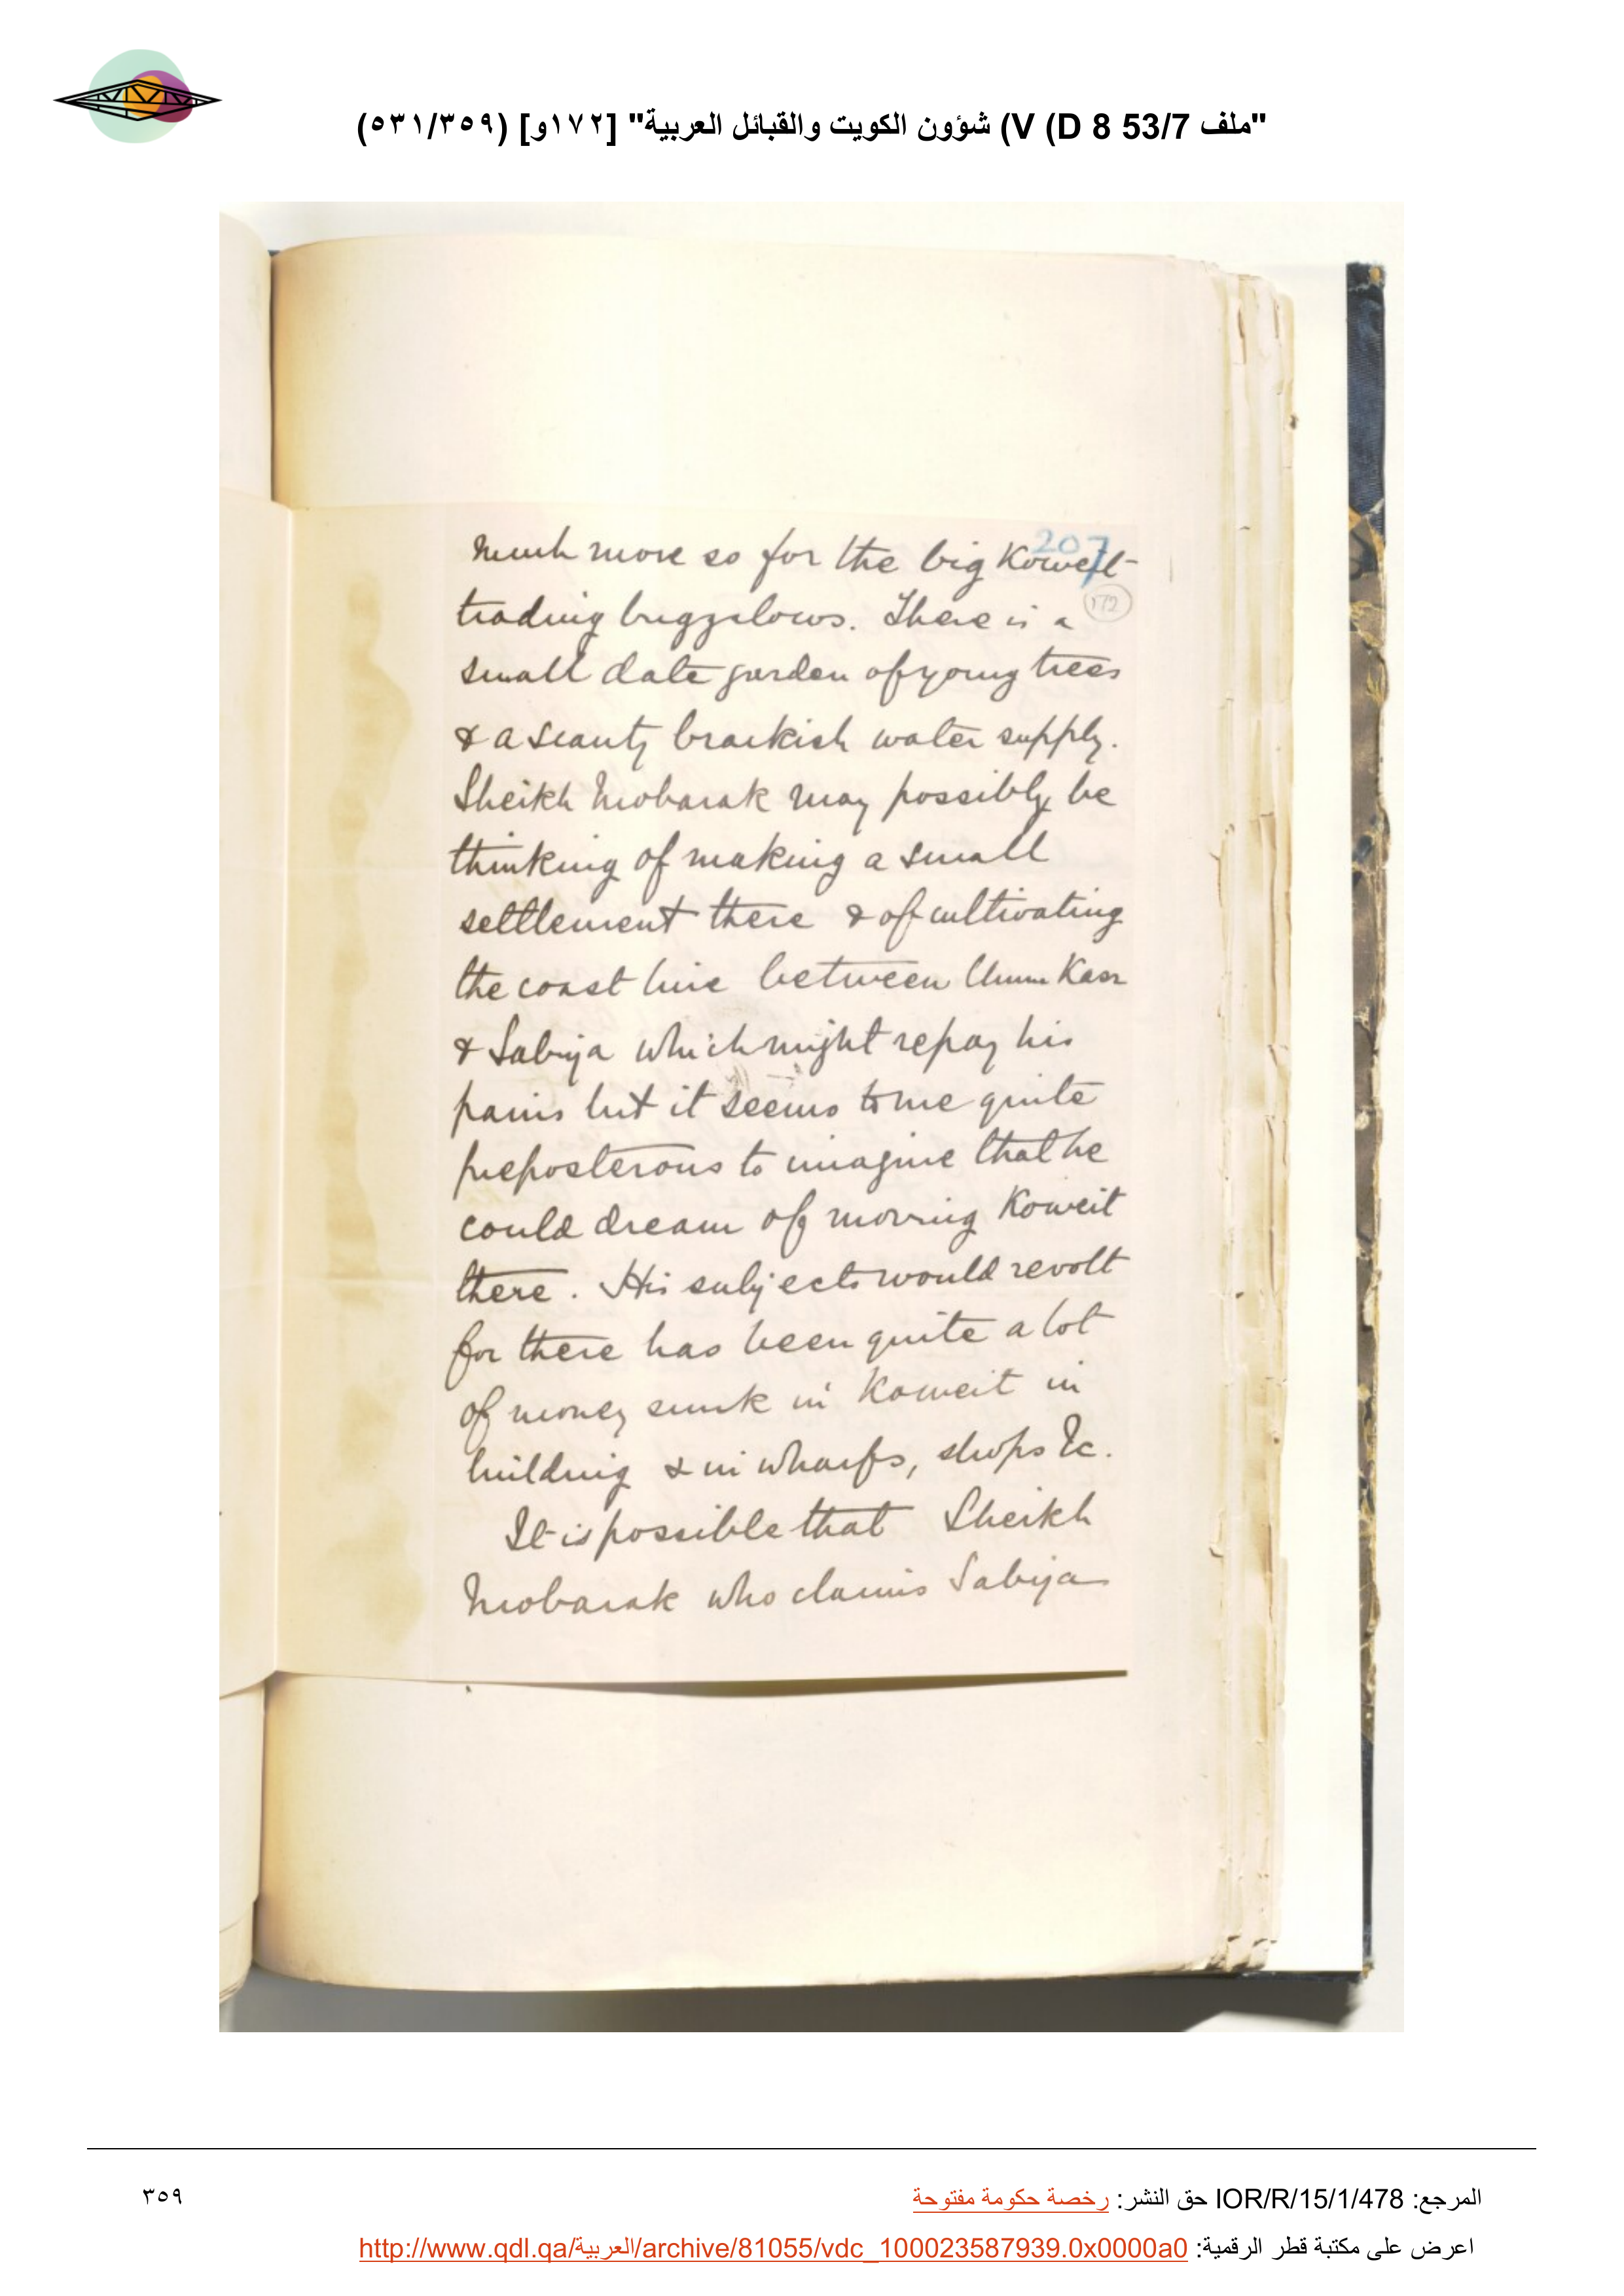 "ملف 53/7 V (D 8) شؤون الكويت والقبائل العربية" [١٧٢و] (٥٣١/٣٥٩)
207
much more so for the big Koweit
172
trading buggalows. There is a
small date garden of young trees
& a scanty brackish water supply.
Sheikh Mobarak may possibly be
thinking of making a small
settlement there & of cultivating
the coast line between Umm Kasr
& Sabiya which might repay his
pains but it seems to me quite
preposterous to imagine that he
could dream of moving Koweit
there. His subjects would revolt
for there has been quite a lot
of money sunk in Koweit in
building & in wharfs, shops &c.
It is possible that Sheikh
Mobarak who claims Sabiya
المرجع: IOR/R/15/1/478 حق النشر: رخصة حكومة مفتوحة
٣٥٩
اعرض على مكتبة قطر الرقمية: http://www.qdl.qa/العربية/archive/81055/vdc_100023587939.0x0000a0